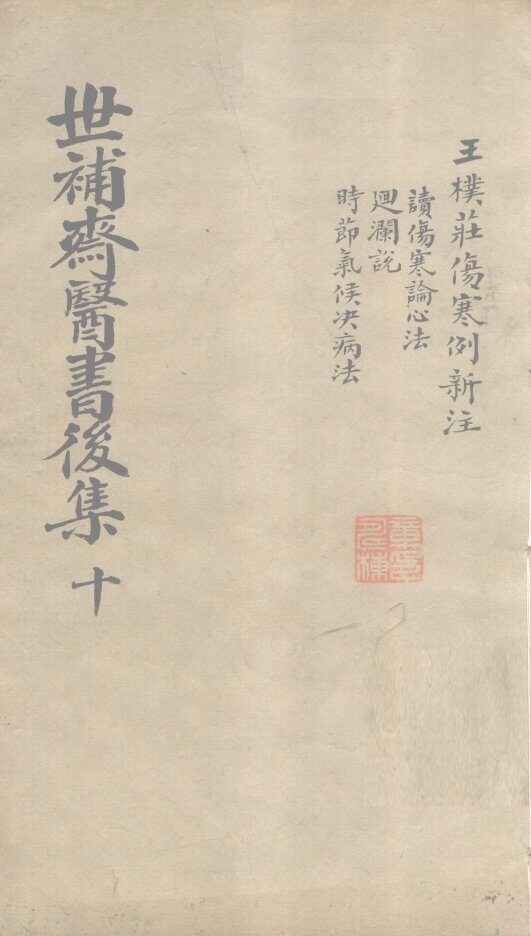 王樸莊傷寒例新注
讀傷寒論心法
廻瀾説
時節氣候决病法
世補齋醫書後集 十